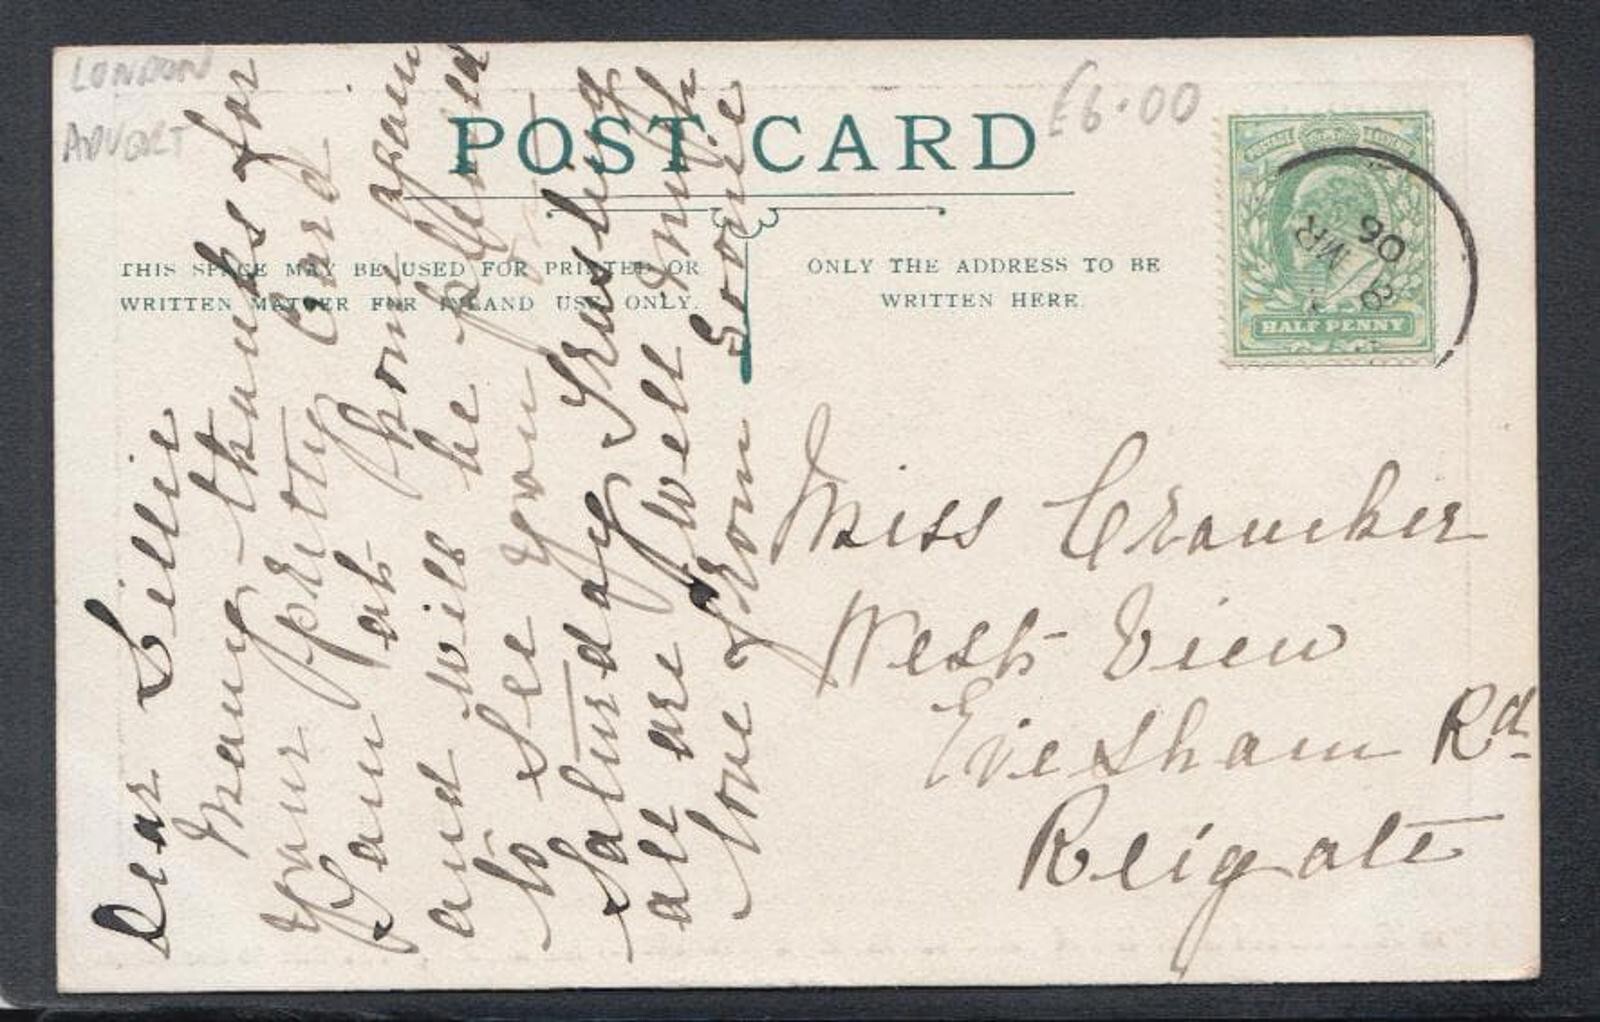 LONDON
ADVERT
£6.00
POST CARD
THIS SPACE MAY BE USED FOR PRINTED OR
WRITTEN MATTER FOR INLAND USE ONLY.
ONLY THE ADDRESS TO BE
WRITTEN HERE.
POSTAGE REVENUE
MR
06
HALF PENNY
Dear Lillie
Many thanks for
your pretty Card
I am at home again
and will be pleased
to see you on
Saturday Trusting
all are well with
love from Gornie
Miss Crowcher
West View
Evesham Rd
Reigate